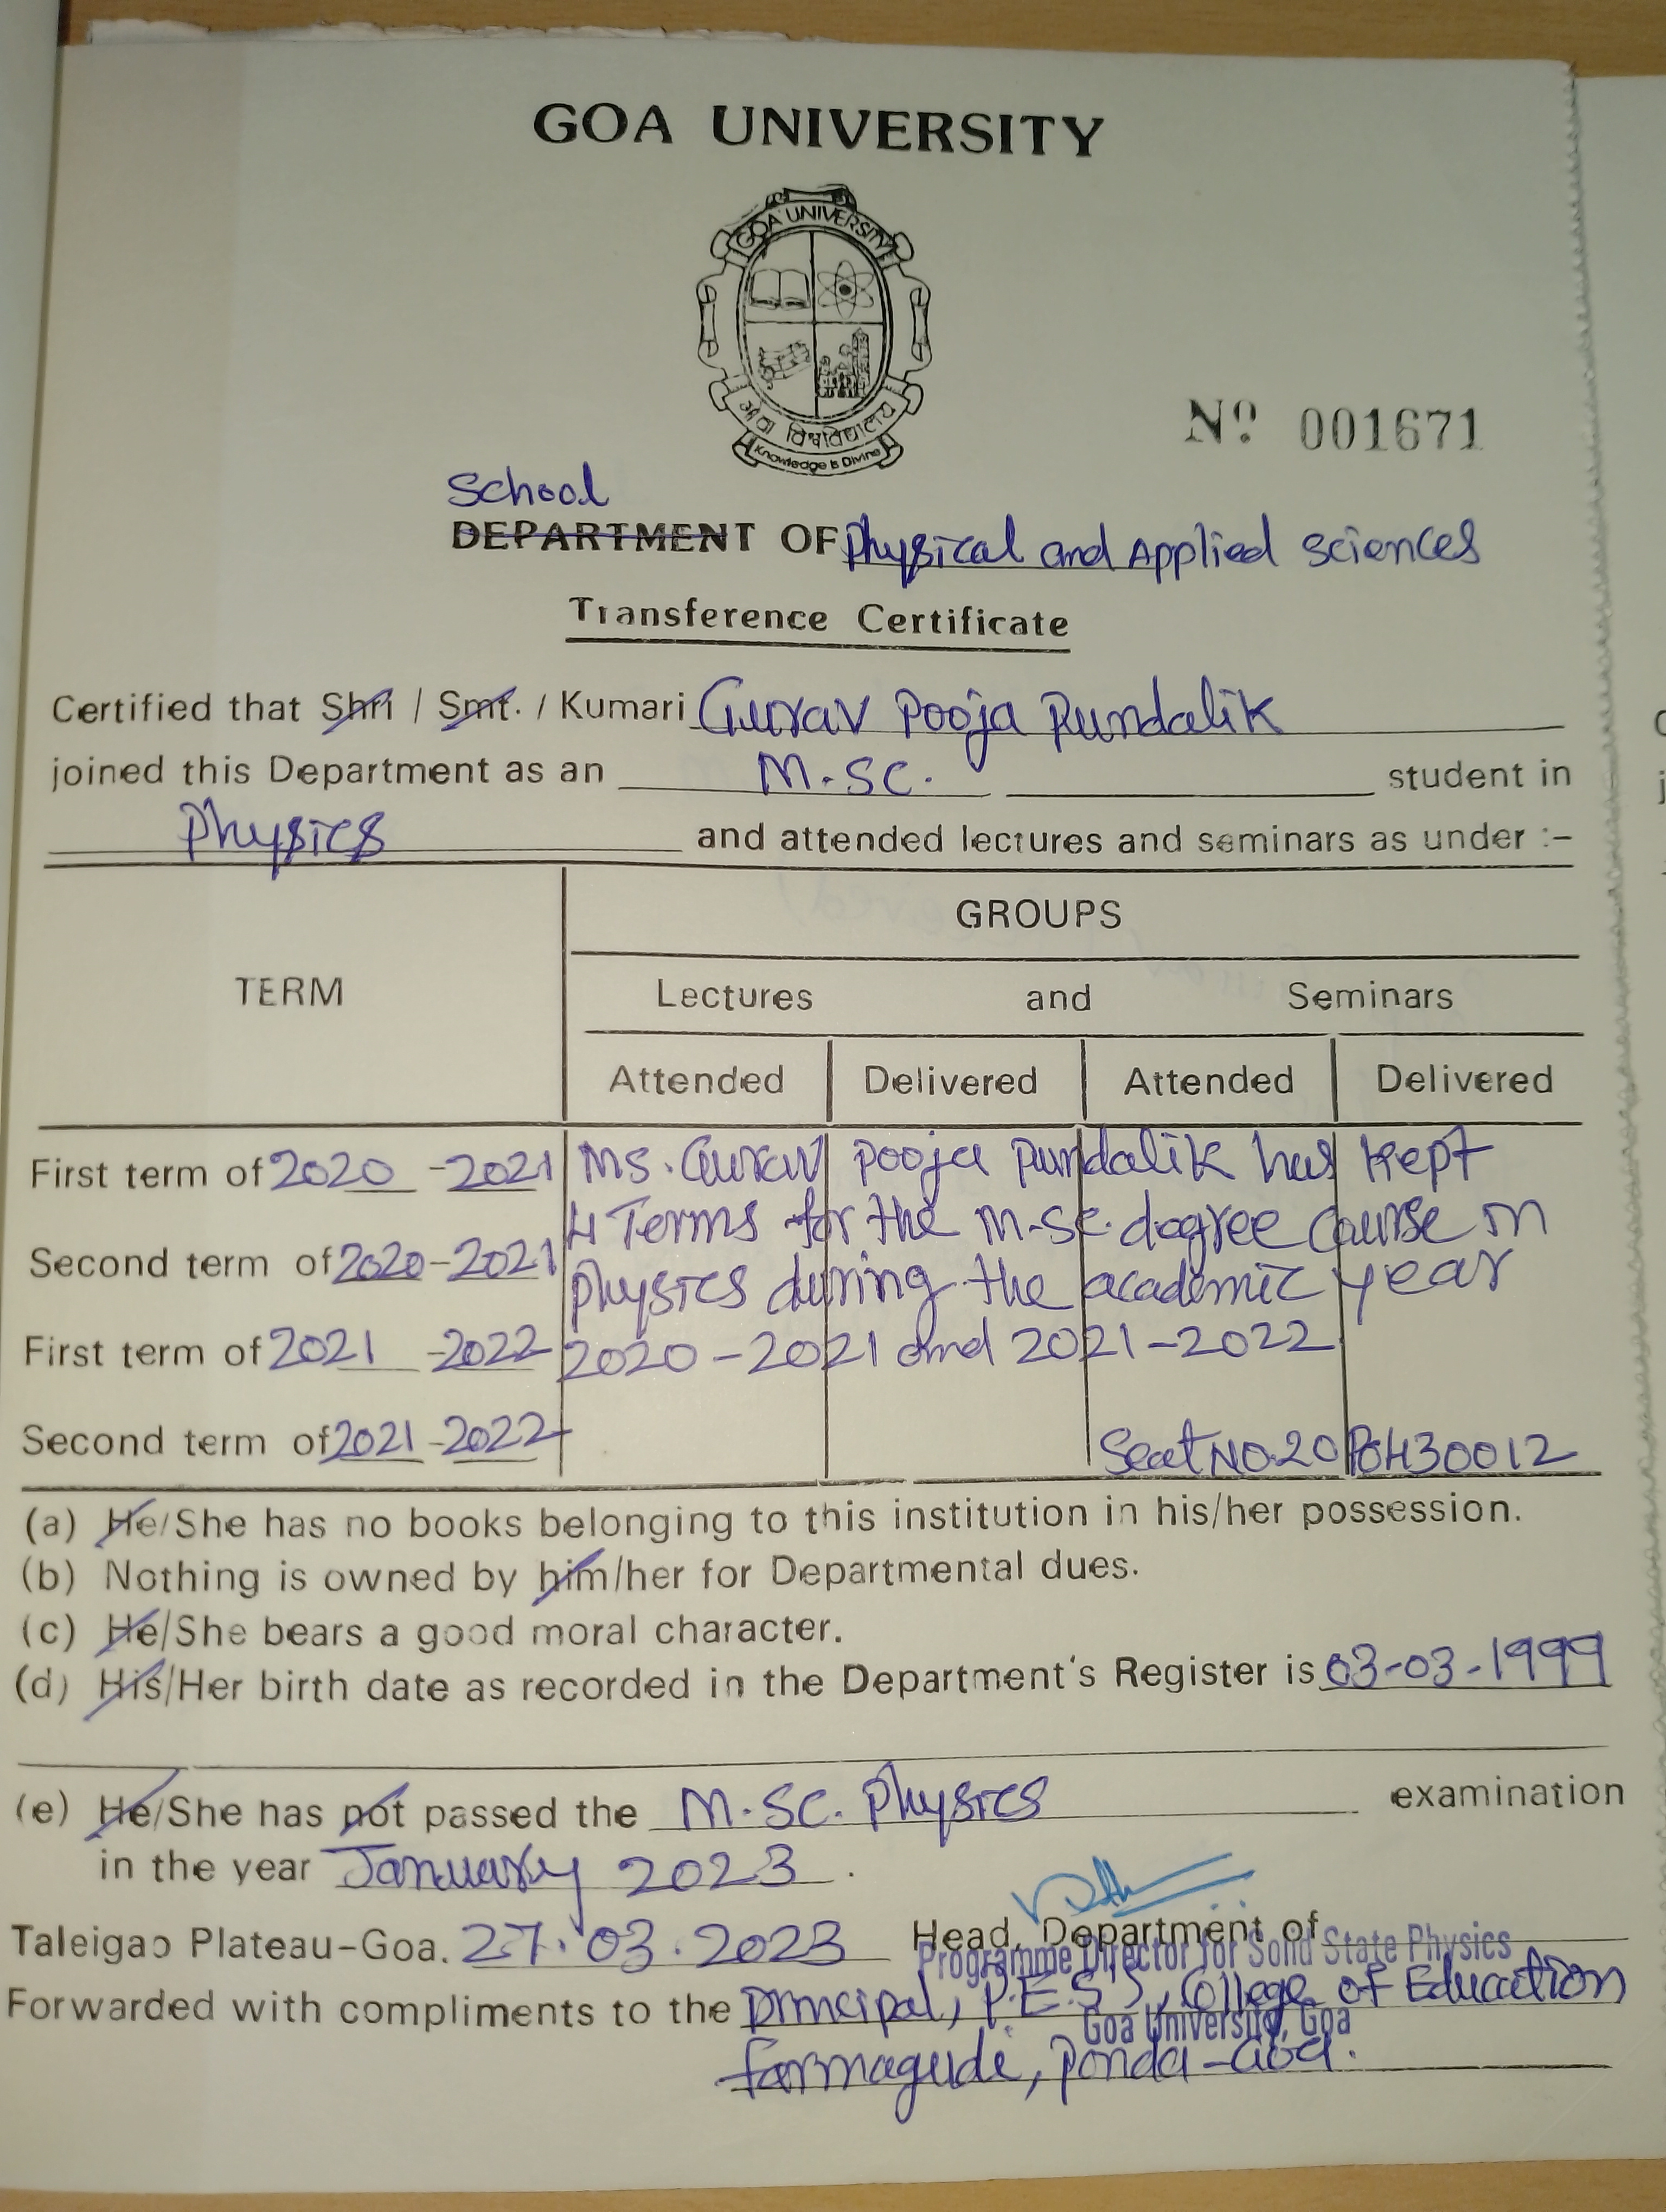 GOA UNIVERSITY
GOA UNIVERSITY
गोंय विश्वविद्यालय
Knowledge is Divine
Nº 001671
School
DEPARTMENT OF Physical and Applied Sciences
Transference Certificate
Certified that Shri / Smt. / Kumari Gurav Pooja Pundalik
joined this Department as an M.Sc. student in
Physics and attended lectures and seminars as under :-
GROUPS
TERM Lectures and Seminars
Attended Delivered Attended Delivered
First term of 2020 - 2021 Ms. Gurav Pooja Pundalik has kept
4 Terms for the M.Sc. degree course in
Second term of 2020-2021
Physics during the academic year
First term of 2021 - 2022 2020-2021 and 2021-2022
Second term of 2021-2022 Seat No. 20P0430012
(a) He/She has no books belonging to this institution in his/her possession.
(b) Nothing is owned by him/her for Departmental dues.
(c) He/She bears a good moral character.
(d) His/Her birth date as recorded in the Department's Register is 03-03-1999
(e) He/She has not passed the M.Sc. Physics examination
in the year January 2023.
Taleigao Plateau-Goa. 27.03.2023 Head, Department of
Programme Director for Solid State Physics
Forwarded with compliments to the Principal, P.E.S's, College of Education
Goa University, Goa
Farmagudi, Ponda-Goa.